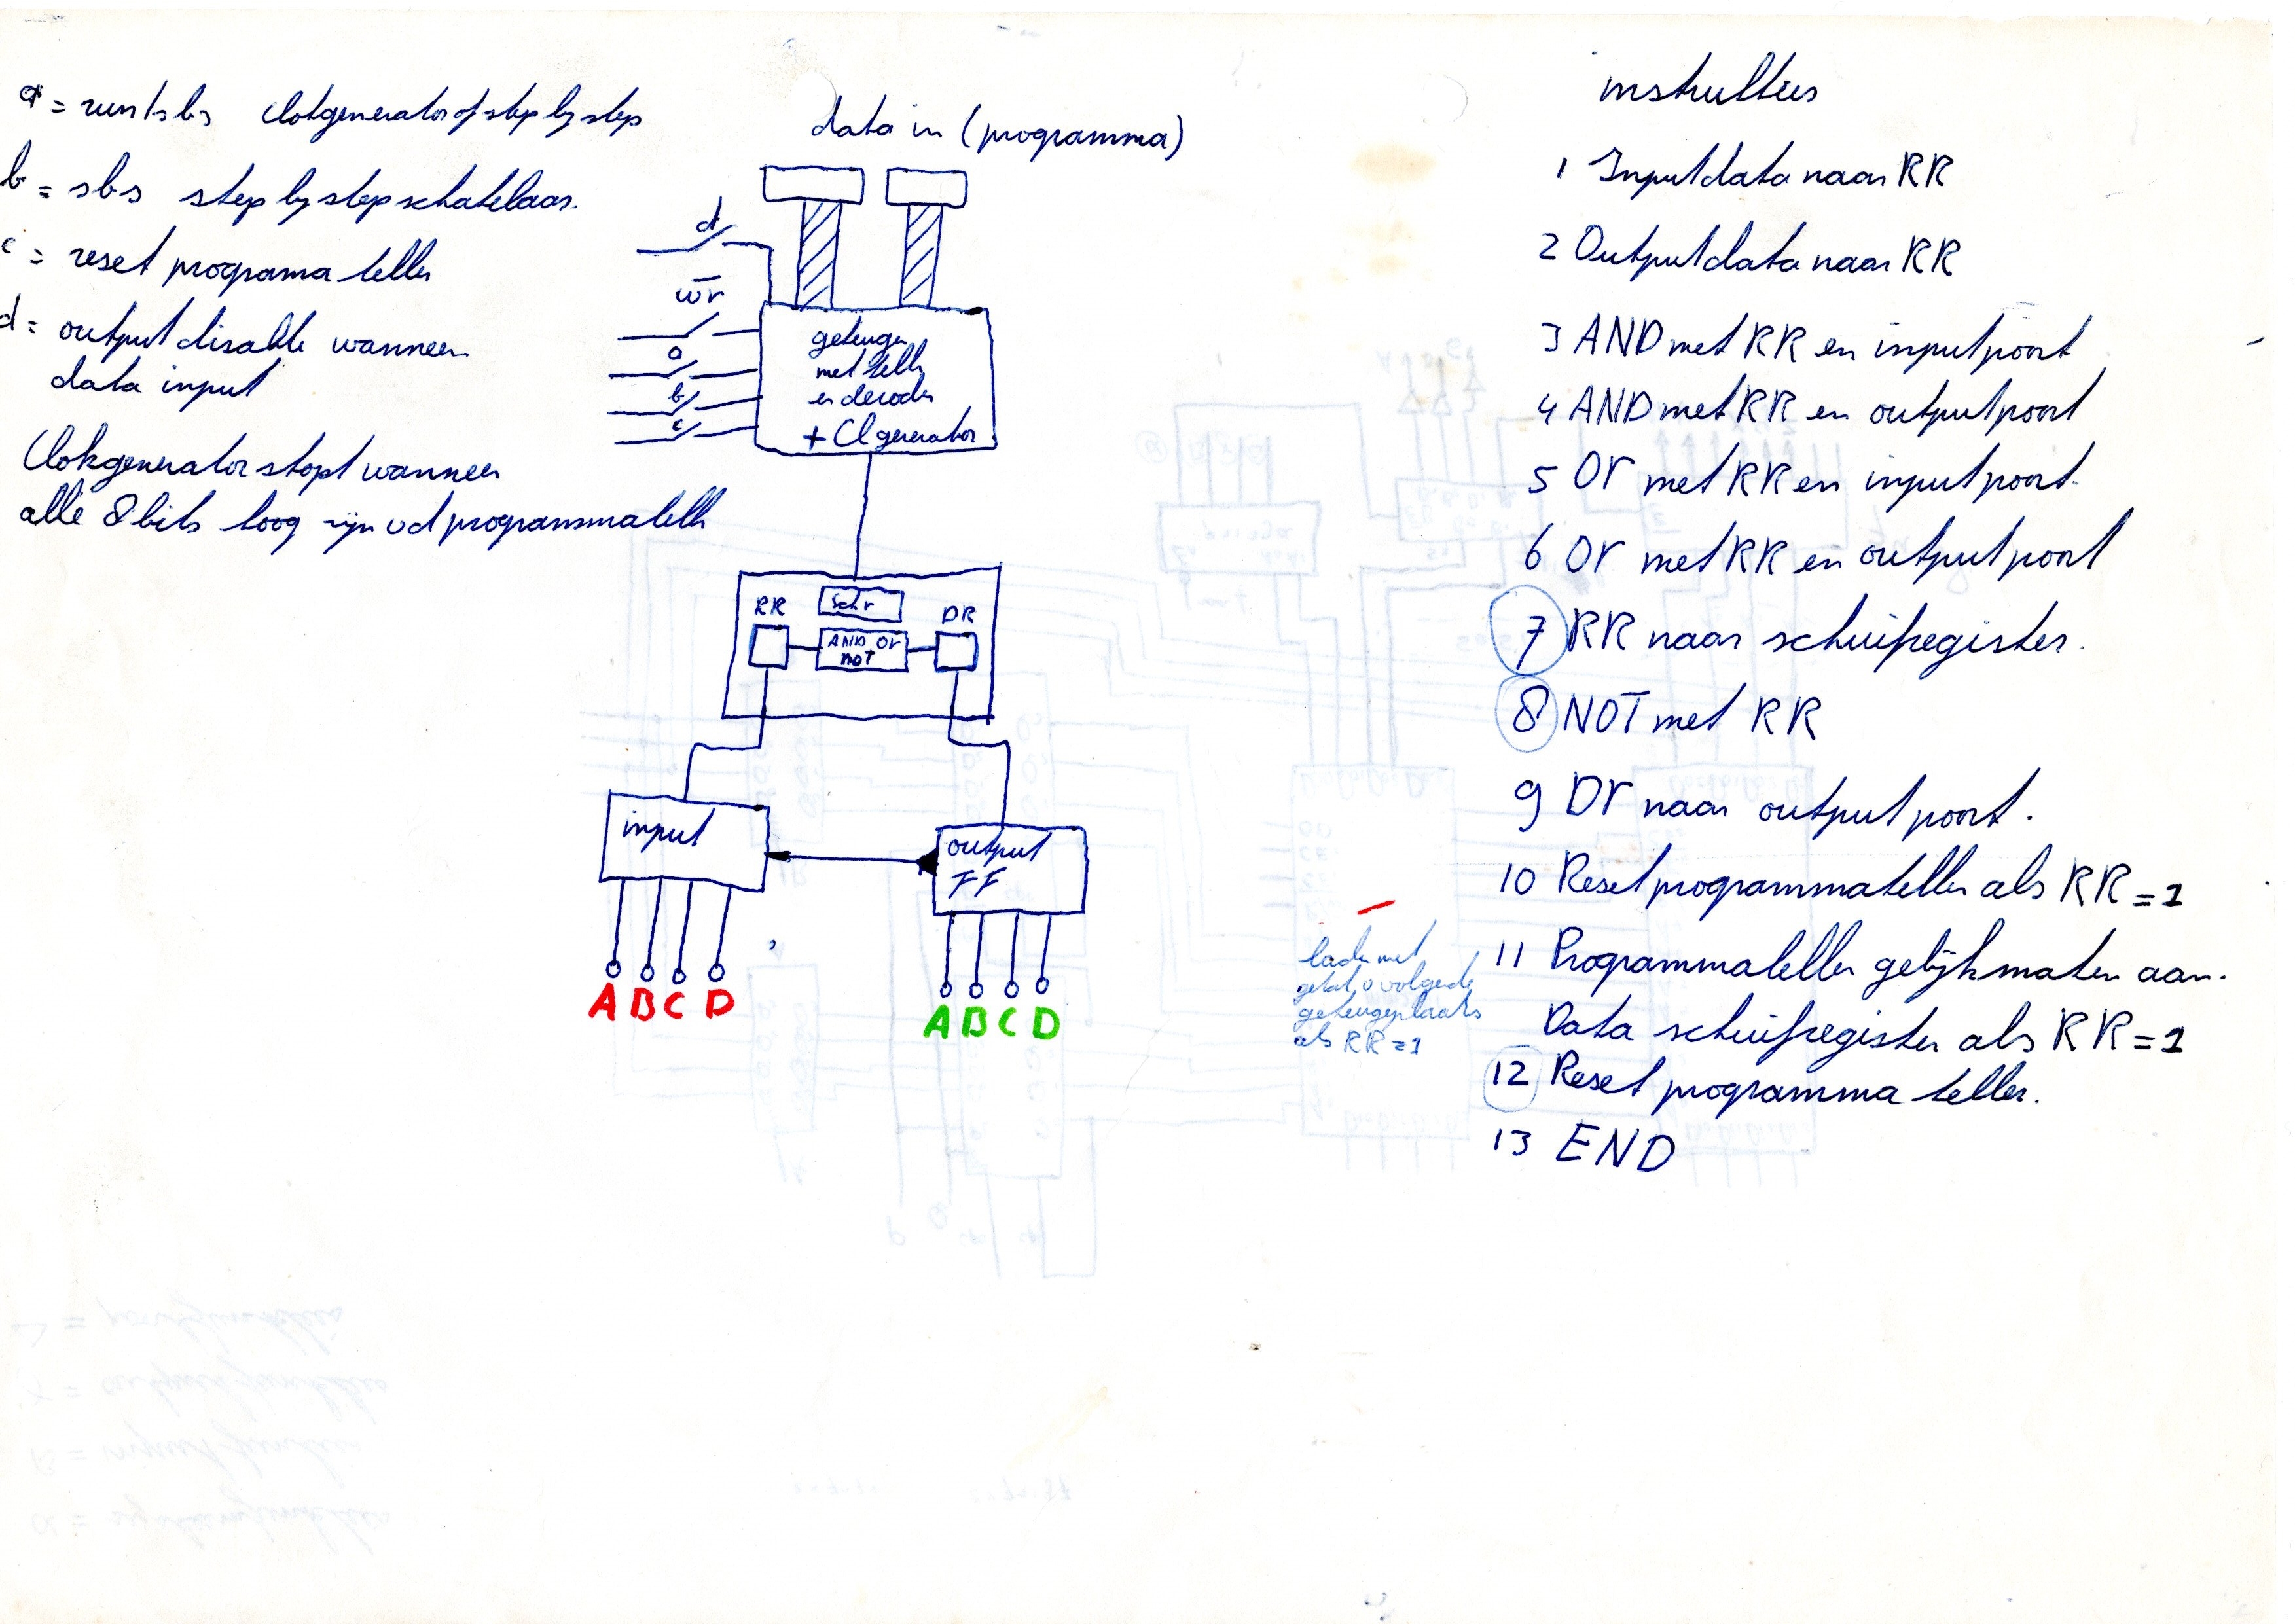 a = run/sbs clokgenerator of step by step
b = sbs step by step schakelaar.
c = reset programa teller
d = output disable wanneer
data input
Clokgenerator stopt wanneer
alle 8 bits hoog zijn vd programmateller
data in (programma)
d
wr
a
b
c
geheugen
met teller
en decoder
+ Cl generator
RR
Schr
DR
AND Or
NOT
input
output
FF
A B C D
A B C D
instrukties
1 Inputdata naar RR
2 Outputdata naar RR
3 AND met RR en inputpoort
4 AND met RR en outputpoort
5 Or met RR en inputpoort.
6 Or met RR en outputpoort
7 RR naar schuifregister.
8 NOT met RR
9 Dr naar outputpoort.
10 Reset programmateller als RR = 1
11 Programmateller gelijkmaken aan.
Data schuifregister als RR = 1
12 Reset programma teller.
13 END
laden met
getal volgende
geheugenplaats
als RR = 1